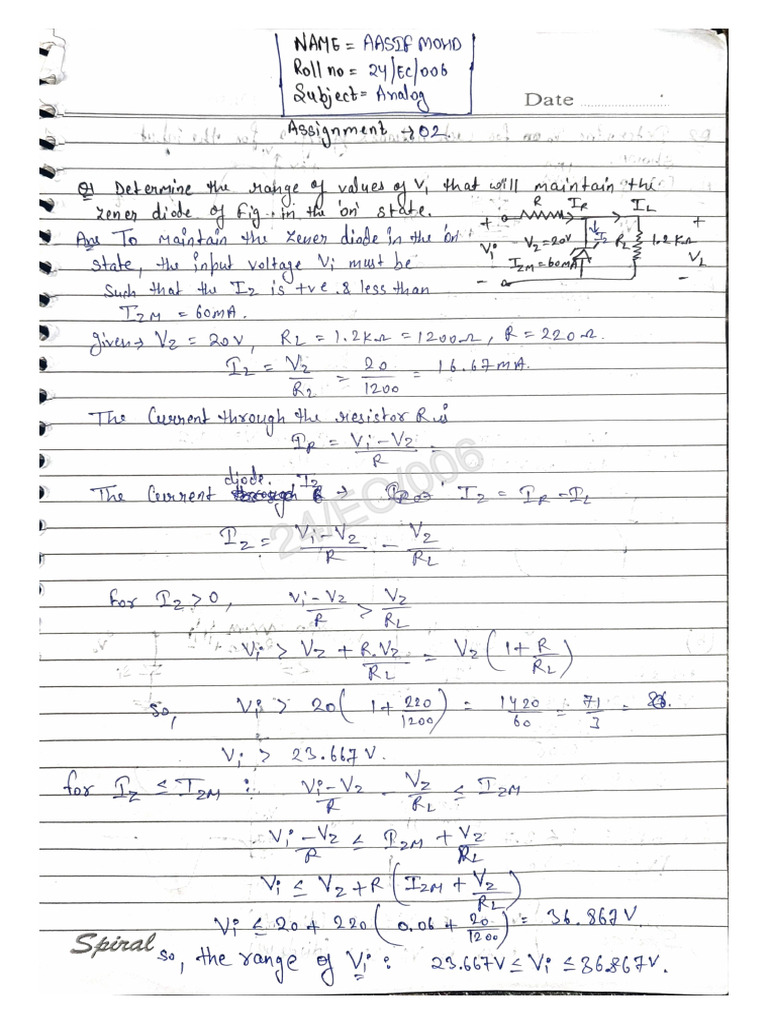 NAME = AASIF MOHD
Roll no = 24/EC/006
Subject = Analog
Date
Assignment → 02.
Q1 Determine the range of values of Vi that will maintain the
zener diode of Fig. in the 'on' state.
R IR IL
+ Vi - VZ=20V IZ RL 1.2KΩ + VL -
IZM=60MA
Ans To maintain the zener diode in the 'on'
state, the input voltage Vi must be
such that the IZ is +ve & less than
IZM = 60MA.
given → VZ = 20V, RL = 1.2KΩ = 1200Ω, R = 220Ω.
IL = VZ/RL = 20/1200 = 16.67MA.
The Current through the resistor R is
IR = Vi-VZ/R =
The Current diode. IZ → IZ = IR - IL
24/EC/006
IZ = Vi-VZ/R - VZ/RL
For IZ > 0, Vi-VZ/R > VZ/RL
Vi > VZ + R.VZ/RL = VZ(1+R/RL)
so, Vi > 20(1+220/1200) = 1420/60 = 71/3 =
Vi > 23.667V.
for IZ ≤ IZM : Vi-VZ/R - VZ/RL ≤ IZM
Vi-VZ/R ≤ IZM + VZ/RL
Vi ≤ VZ+R(IZM + VZ/RL)
Vi ≤ 20 + 220(0.06 + 20/1200) = 36.867V
Spiral
so, the range of Vi : 23.667V ≤ Vi ≤ 36.867V.